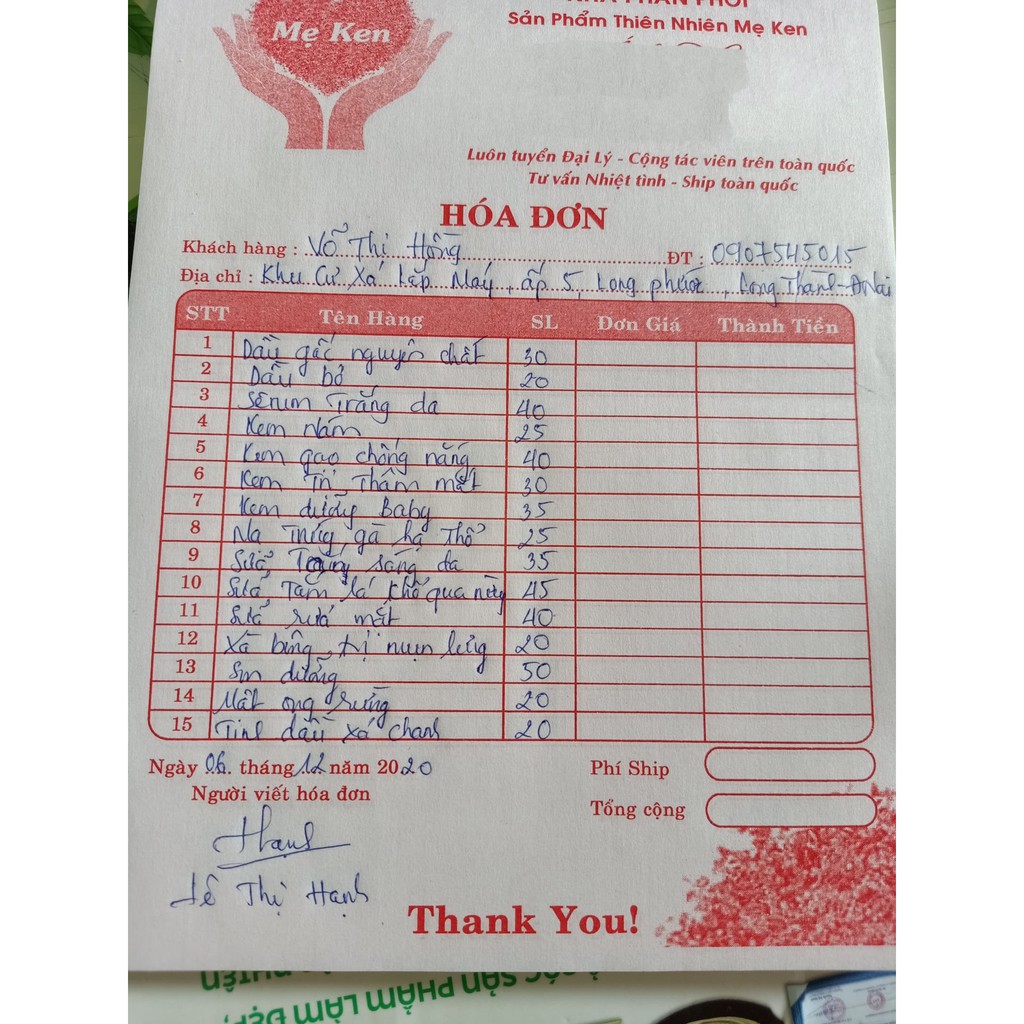 Mẹ Ken
NHÀ PHÂN PHỐI
Sản Phẩm Thiên Nhiên Mẹ Ken
Luôn tuyển Đại Lý - Cộng tác viên trên toàn quốc
Tư vấn Nhiệt tình - Ship toàn quốc
HÓA ĐƠN
Khách hàng : Võ Thị Hồng ĐT : 0907545015
Địa chỉ : Khu Cư Xá Lắp Máy, ấp 5, Long phước, Long Thành-ĐNai
STT Tên Hàng SL Đơn Giá Thành Tiền
1 Dầu gấc nguyên chất 30
2 Dầu bơ 20
3 Serum Trắng da 40
4 Kem nám 25
5 Kem gạo chống nắng 40
6 Kem Trị Thâm mắt 30
7 Kem dưỡng Baby 35
8 Nạ Trứng gà hạ Thổ 25
9 Sữa sáng da 35
10 Sữa Tắm lá khổ qua rừng 45
11 Sữa rửa mặt 40
12 Xà bông trị mụn lưng 20
13 Son dưỡng 50
14 Mật ong rừng 20
15 Tinh dầu xả chanh 20
Ngày 06. tháng 12 năm 2020
Phí Ship
Người viết hóa đơn
Tổng cộng
Hạnh
Lê Thị Hạnh
Thank You!
SẢN PHẨM LÀM ĐẸP,